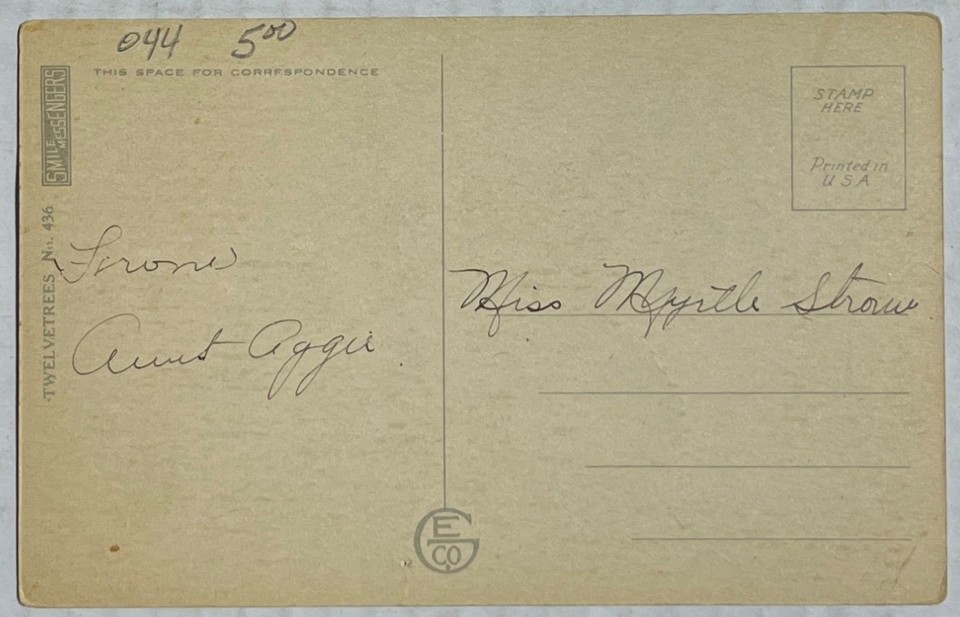 044 5.00
THIS SPACE FOR CORRESPONDENCE
SMILE MESSENGERS
TWELVETREES No. 436
STAMP
HERE
Printed in
U S A
Aunt Aggie
Miss Myrtle
E G CO.